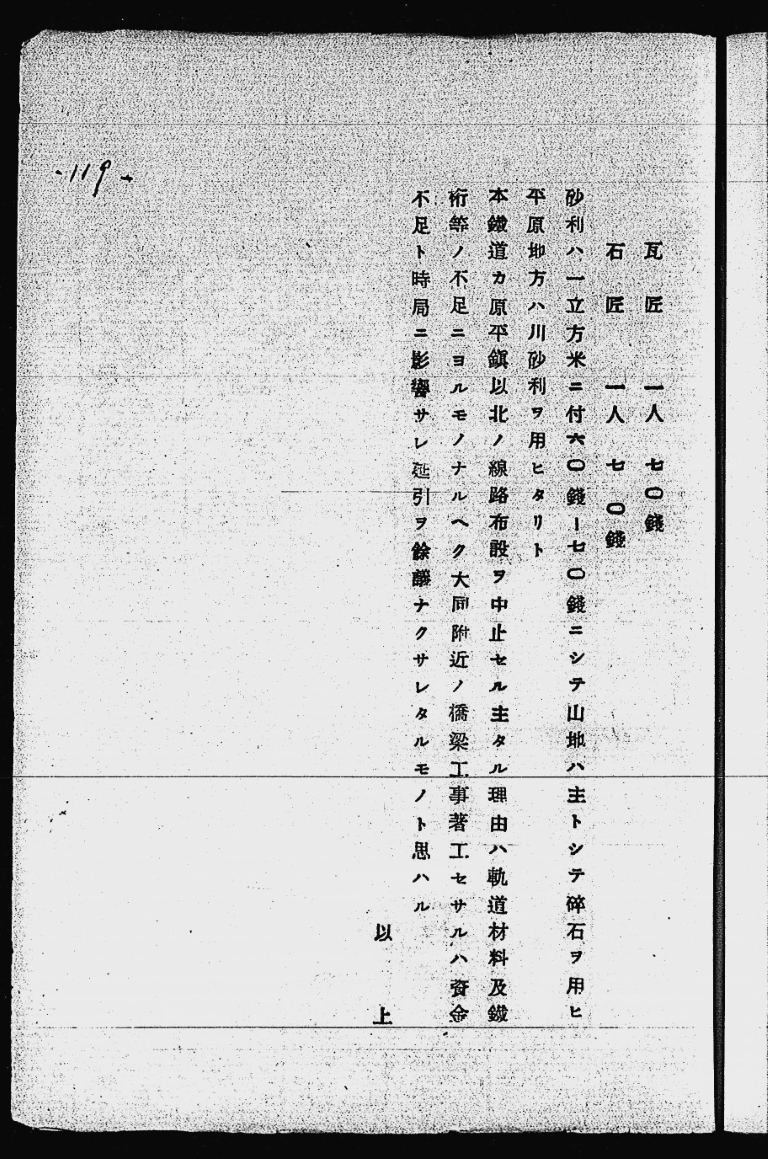 瓦匠 一人 七〇錢
石匠 一人 七〇錢
砂利ハ一立方米ニ付六〇錢ー七〇錢ニシテ山地ハ主トシテ碎石ヲ用ヒ
平原地方ハ川砂利ヲ用ヒタリト
本鐵道カ原平鎭以北ノ線路布設ヲ中止セル主タル理由ハ軌道材料及鐵
桁等ノ不足ニヨルモノナルヘク大同附近ノ橋梁工事著工セサルハ資金
不足ト時局ニ影響サレ延引ヲ餘議ナクサレタルモノト思ハル
以上
-119-